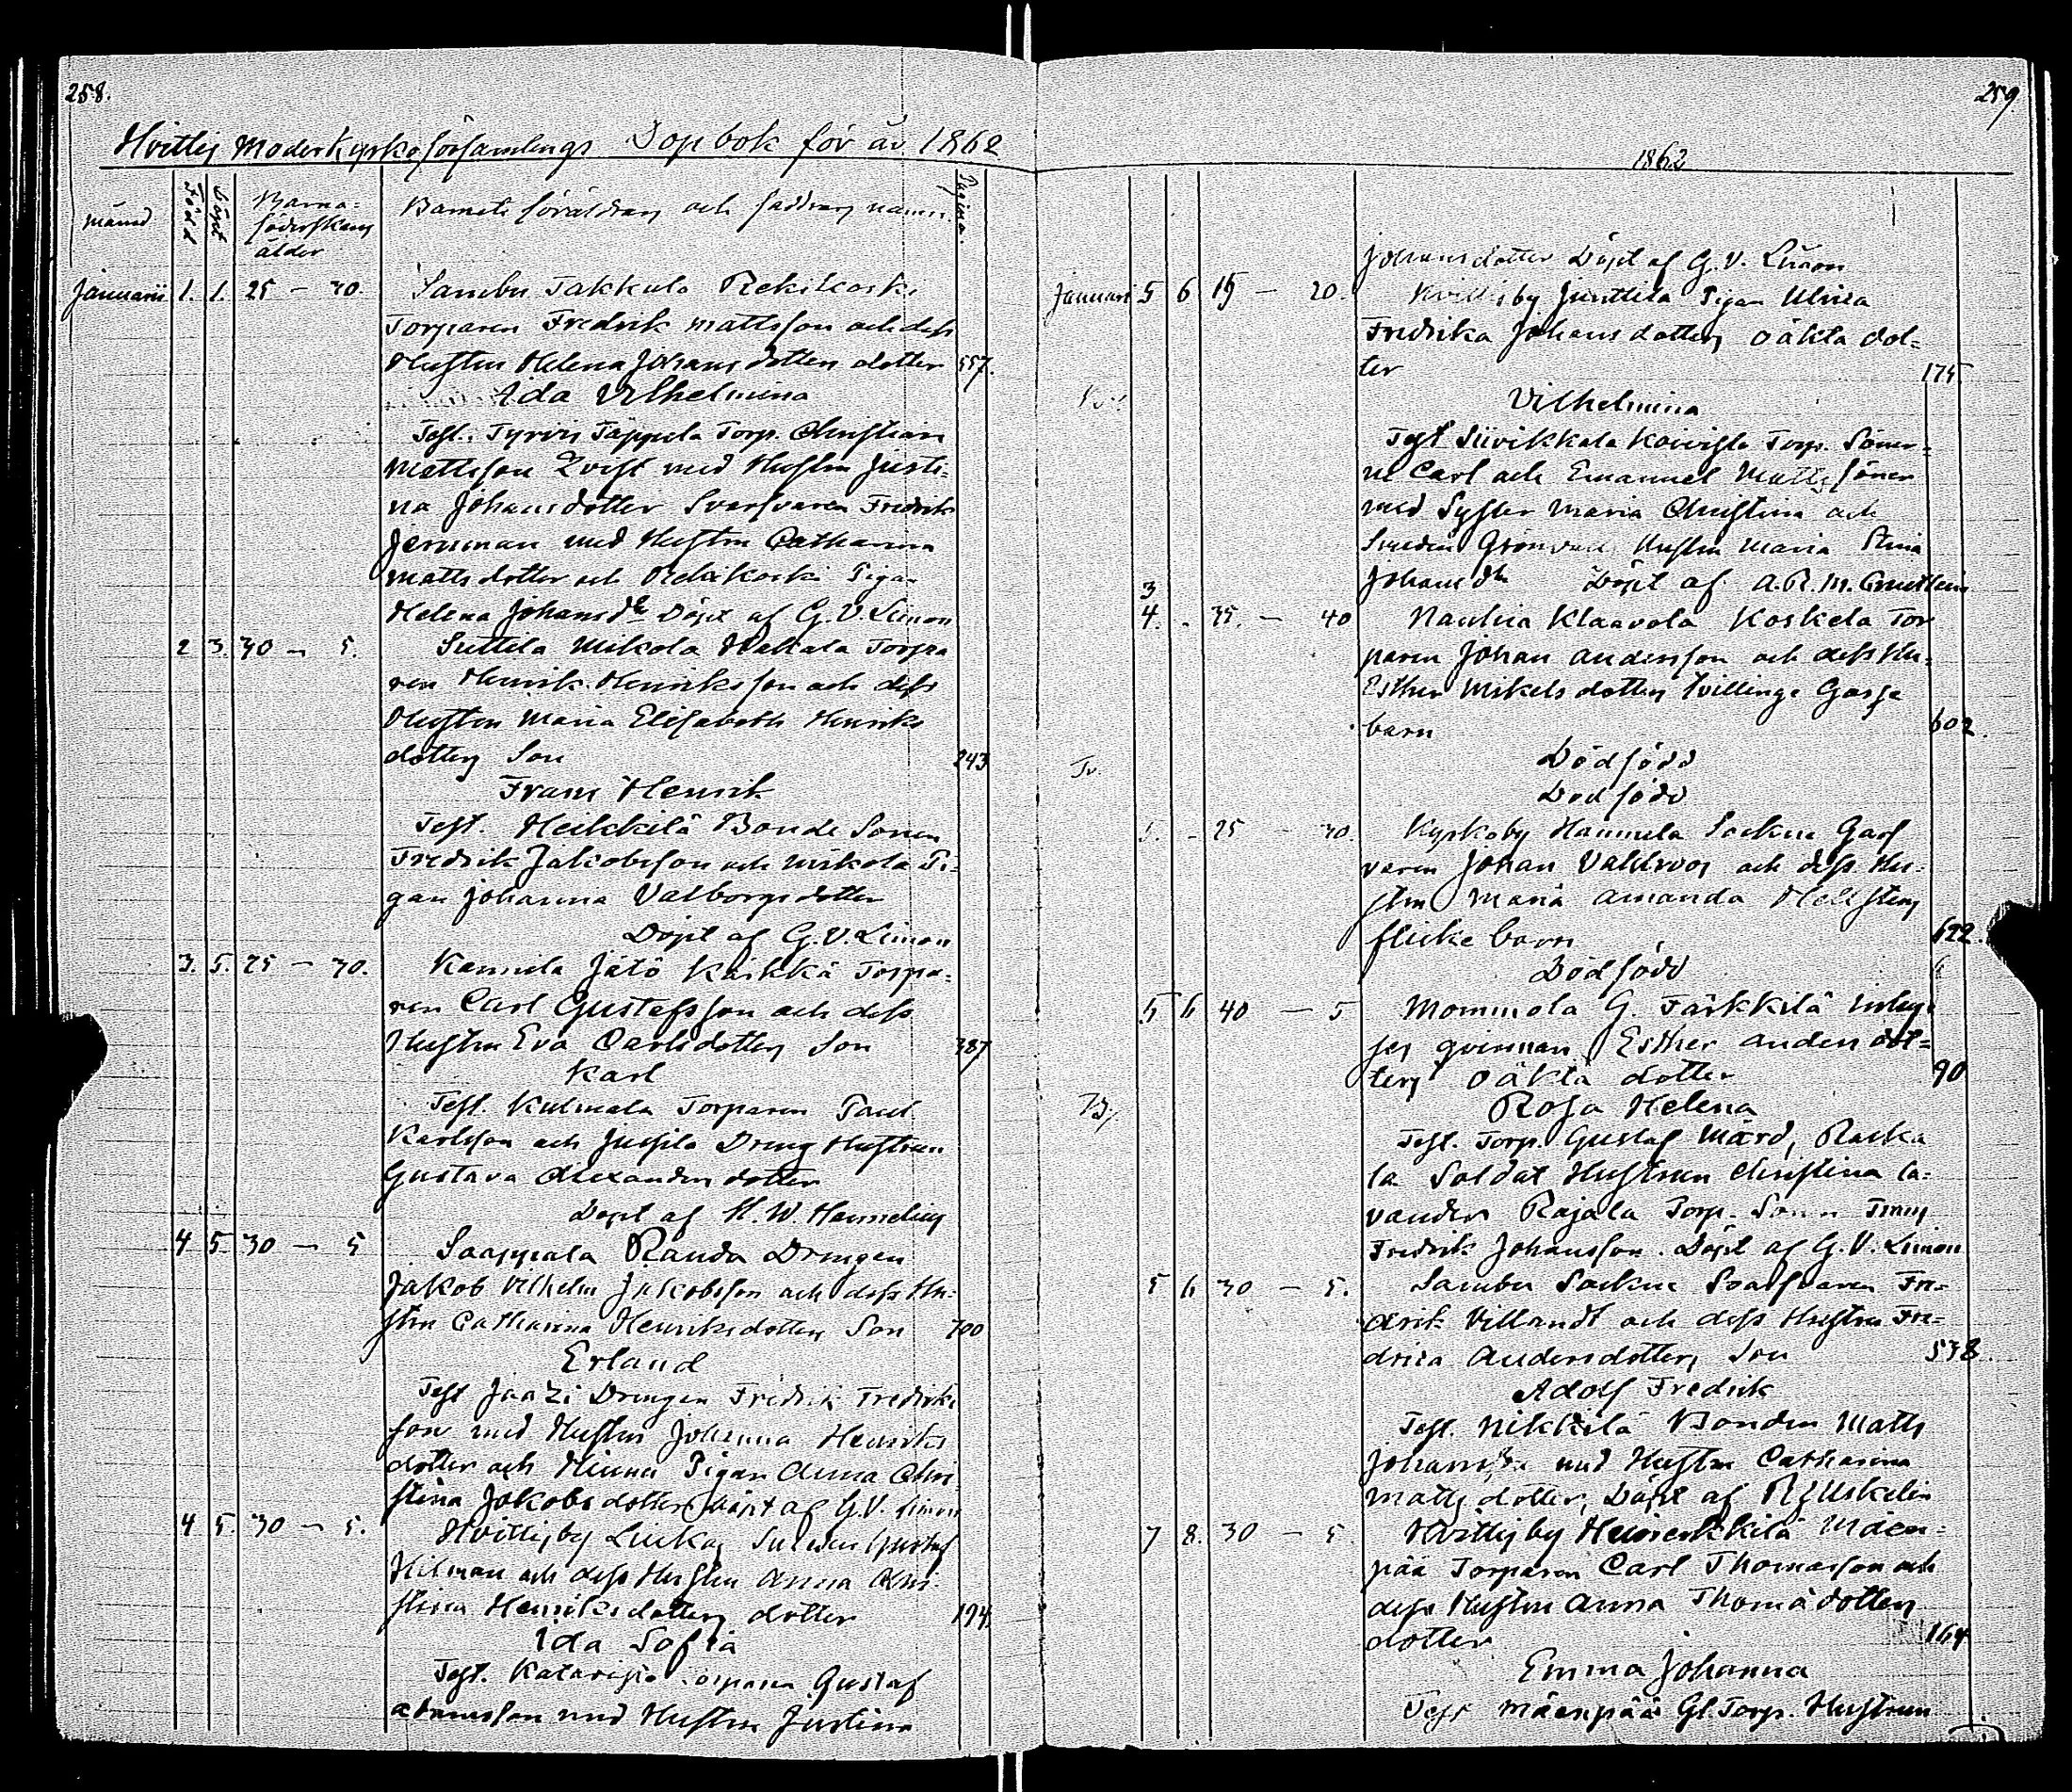 258.
Hvittis Moderkyrkoförsamlings Dopbok för år 1862
månad
Född
Döpt
Barna-
föderskans
ålder
Barnets föräldrars och faddrars namn.
Pagina.
Januarii 1. 1. 25 - 30. Sambu Takkula Rekikoski
Torparen Fredrik Mattsson och dess
Hustru Helena Johansdotters dotter 557.
Ida Vilhelmina
Test. Tyrvis Tappula Torp. Christian
Mattsson Qvist med Hustru Justi-
na Johansdotter Svarfvaren Fredrik
Jernman med Hustru Catharina
Mattsdotter och Rekikoski Pigan
Helena Johansdr Döpt af G. V. Limon
2 3. 30 - 5. Suttila Mikola Torpa
ren Henrik Henriksson och dess
Hustru Maria Elisabeth Henriks
dotters Son 243
Frans Henrik
Test. Heikkilä Bonde Sonen
Fredrik Jakobsson och Mikola Pi-
gan Johanna Valborgsdotter
Döpt af G. V. Limon
3. 5. 25 - 30. Kannila Jätö Karkkä Torpa-
ren Carl Gustafsson och dess
Hustru Eva Carlsdotters Son 387
Karl
Test. Kulmala Torparen Paul
Karlsson och Jussila Dreng Hustrun
Gustava Alexandersdotter
Döpt af H. W. Hanneling
4 5. 30 - 5 Saappala Randa Drengen
Jakob Vilhelm Jakobsson och dess Hu-
stru Catharina Henriksdotters Son 700
Erland
Test Drengen Fredrik Fredriks
son med Hustru Johanna Henriks
dotter och Pigan Anna Chri
stina Jakobsdotter Döpt af G. V. Limon
4 5. 30 - 5. Hvittisby Gustaf
Hilman och dess Hustru Anna Chri-
stina Henriksdotters dotter 194.
Ida Sofia
Test. Gustaf
Adamsson med Hustru Justina
259
1862
Johansdotter Döpt af G. V. Limon
Januari 5 6 15 - 20. Hvittisby Junttila Pigan Ulrica
Fredrika Johansdotters oäkta dot-
ter 175
Vilhelmina
Test Siivikkala Koivisto Torp. Söner-
ne Carl och Emanuel Mattssöner
med Syster Maria Christina och
Smeden Hustru Maria Stina
Johansdtr Döpt af A. R. M.
3
4. - 35. - 40 Nauhia Klaavola Koskela Tor
paren Johan Andersson och dess Hu-
Esther Mikelsdotters Tvillinge Gosse
barn 602.
Tv.
Dödfödd
Dödfödd
5. - 25 - 30. Kyrkoby Hannula Sockne Garf
varen Johan Valdroos och dess Hu-
stru Maria Amanda Hellstens
flicke barn 622.
Dödfödd
5 6 40 - 5 Mommola G. Tarkkilä
qvinnan Esther Andersdot-
ters oäkta dotter 90
Rosa Helena
Test. Torp. Gustaf Mård, Raska
la Soldat Hustrun Christina La-
vander Rajala Torp. Sonen Frans
Fredrik Johansson. Döpt af G. V. Limon
5 6 30 - 5. Sambu Sockne Svarfvaren Fre-
drik Villandt och dess Hustru Fre-
drica Andersdotters Son 538.
Adolf Fredrik
Test. Nikkilä Bonden Matts
Johansson med Hustru Catharina
Mattsdotter, Döpt af
7 8. 30 - 5. Hvittisby Mäen-
pää Torparen Carl Thomasson och
dess Hustru Anna Thomädotters
dotter 164
Emma Johanna
Test Mäenpää Gl. Torp. Hustrun